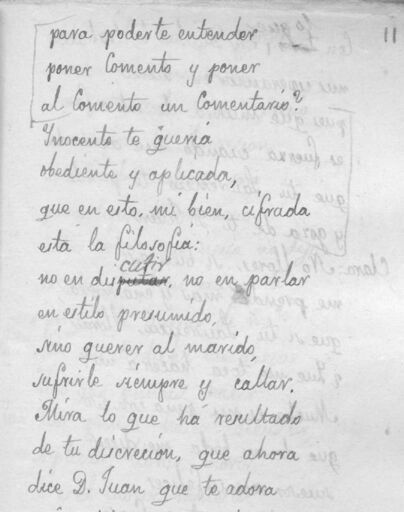 11
para poderte entender
poner Comento y poner
al Comento un Comentario?
Inocente te quería
obediente y aplicada,
que en esto, mi bien, cifrada
está la filosofía:
no en discutir, no en parlar
en estilo presumido,
sino querer al marido,
sufrirle siempre y callar.
Mira lo que há resultado
de tu discreción, que ahora
dice D. Juan que te adora